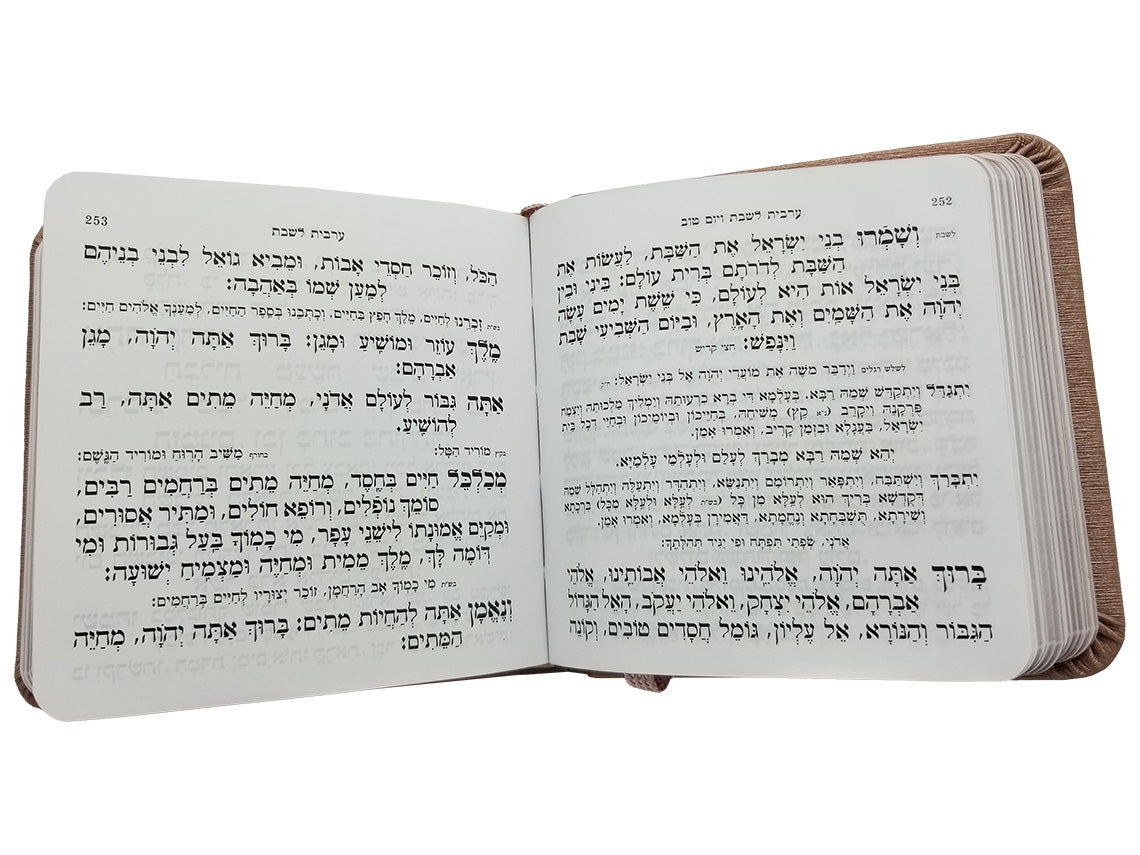 252
ערבית לשבת ויום טוב
לשבת וְשָׁמְרוּ בְנֵי יִשְׂרָאֵל אֶת הַשַּׁבָּת, לַעֲשׂוֹת אֶת
הַשַּׁבָּת לְדֹרֹתָם בְּרִית עוֹלָם: בֵּינִי וּבֵין
בְּנֵי יִשְׂרָאֵל אוֹת הִיא לְעוֹלָם, כִּי שֵׁשֶׁת יָמִים עָשָׂה
יְהֹוָה אֶת הַשָּׁמַיִם וְאֶת הָאָרֶץ, וּבַיּוֹם הַשְּׁבִיעִי שָׁבַת
וַיִּנָּפַשׁ: חצי קדיש
לשלש רגלים וַיְדַבֵּר מֹשֶׁה אֶת מוֹעֲדֵי יְהֹוָה אֶל בְּנֵי יִשְׂרָאֵל: ח״ק
יִתְגַּדַּל וְיִתְקַדַּשׁ שְׁמֵהּ רַבָּא. בְּעָלְמָא דִּי בְרָא כִרְעוּתֵהּ וְיַמְלִיךְ מַלְכוּתֵהּ וְיַצְמַח
פֻּרְקָנֵהּ וִיקָרֵב (נ״א קֵץ) מְשִׁיחֵהּ, בְּחַיֵּיכוֹן וּבְיוֹמֵיכוֹן וּבְחַיֵּי דְכָל בֵּית
יִשְׂרָאֵל, בַּעֲגָלָא וּבִזְמַן קָרִיב, וְאִמְרוּ אָמֵן.
יְהֵא שְׁמֵהּ רַבָּא מְבָרַךְ לְעָלַם וּלְעָלְמֵי עָלְמַיָּא.
יִתְבָּרַךְ וְיִשְׁתַּבַּח, וְיִתְפָּאַר וְיִתְרוֹמַם וְיִתְנַשֵּׂא, וְיִתְהַדָּר וְיִתְעַלֶּה וְיִתְהַלָּל שְׁמֵהּ
דְּקֻדְשָׁא בְּרִיךְ הוּא לְעֵלָּא מִן כָּל (בש״ת לְעֵלָּא וּלְעֵלָּא מִכָּל) בִּרְכָתָא
וְשִׁירָתָא, תֻּשְׁבְּחָתָא וְנֶחֱמָתָא, דַּאֲמִירָן בְּעָלְמָא, וְאִמְרוּ אָמֵן.
אֲדֹנָי, שְׂפָתַי תִּפְתָּח וּפִי יַגִּיד תְּהִלָּתֶךָ:
בָּרוּךְ אַתָּה יְהֹוָה, אֱלֹהֵינוּ וֵאלֹהֵי אֲבוֹתֵינוּ, אֱלֹהֵי
אַבְרָהָם, אֱלֹהֵי יִצְחָק, וֵאלֹהֵי יַעֲקֹב, הָאֵל הַגָּדוֹל
הַגִּבּוֹר וְהַנּוֹרָא, אֵל עֶלְיוֹן, גּוֹמֵל חֲסָדִים טוֹבִים, וְקוֹנֵה
253
ערבית לשבת
הַכֹּל, וְזוֹכֵר חַסְדֵי אָבוֹת, וּמֵבִיא גוֹאֵל לִבְנֵי בְנֵיהֶם
לְמַעַן שְׁמוֹ בְּאַהֲבָה:
בש״ת זָכְרֵנוּ לְחַיִּים, מֶלֶךְ חָפֵץ בַּחַיִּים, וְכָתְבֵנוּ בְּסֵפֶר הַחַיִּים, לְמַעַנְךָ אֱלֹהִים חַיִּים:
מֶלֶךְ עוֹזֵר וּמוֹשִׁיעַ וּמָגֵן: בָּרוּךְ אַתָּה יְהֹוָה, מָגֵן
אַבְרָהָם:
אַתָּה גִּבּוֹר לְעוֹלָם אֲדֹנָי, מְחַיֵּה מֵתִים אַתָּה, רַב
לְהוֹשִׁיעַ.
בקיץ מוֹרִיד הַטָּל: בחורף מַשִּׁיב הָרוּחַ וּמוֹרִיד הַגֶּשֶׁם:
מְכַלְכֵּל חַיִּים בְּחֶסֶד, מְחַיֵּה מֵתִים בְּרַחֲמִים רַבִּים,
סוֹמֵךְ נוֹפְלִים, וְרוֹפֵא חוֹלִים, וּמַתִּיר אֲסוּרִים,
וּמְקַיֵּם אֱמוּנָתוֹ לִישֵׁנֵי עָפָר, מִי כָמוֹךָ בַּעַל גְּבוּרוֹת וּמִי
דּוֹמֶה לָּךְ, מֶלֶךְ מֵמִית וּמְחַיֶּה וּמַצְמִיחַ יְשׁוּעָה:
בש״ת מִי כָמוֹךָ אַב הָרַחֲמָן, זוֹכֵר יְצוּרָיו לְחַיִּים בְּרַחֲמִים:
וְנֶאֱמָן אַתָּה לְהַחֲיוֹת מֵתִים: בָּרוּךְ אַתָּה יְהֹוָה, מְחַיֵּה
הַמֵּתִים: